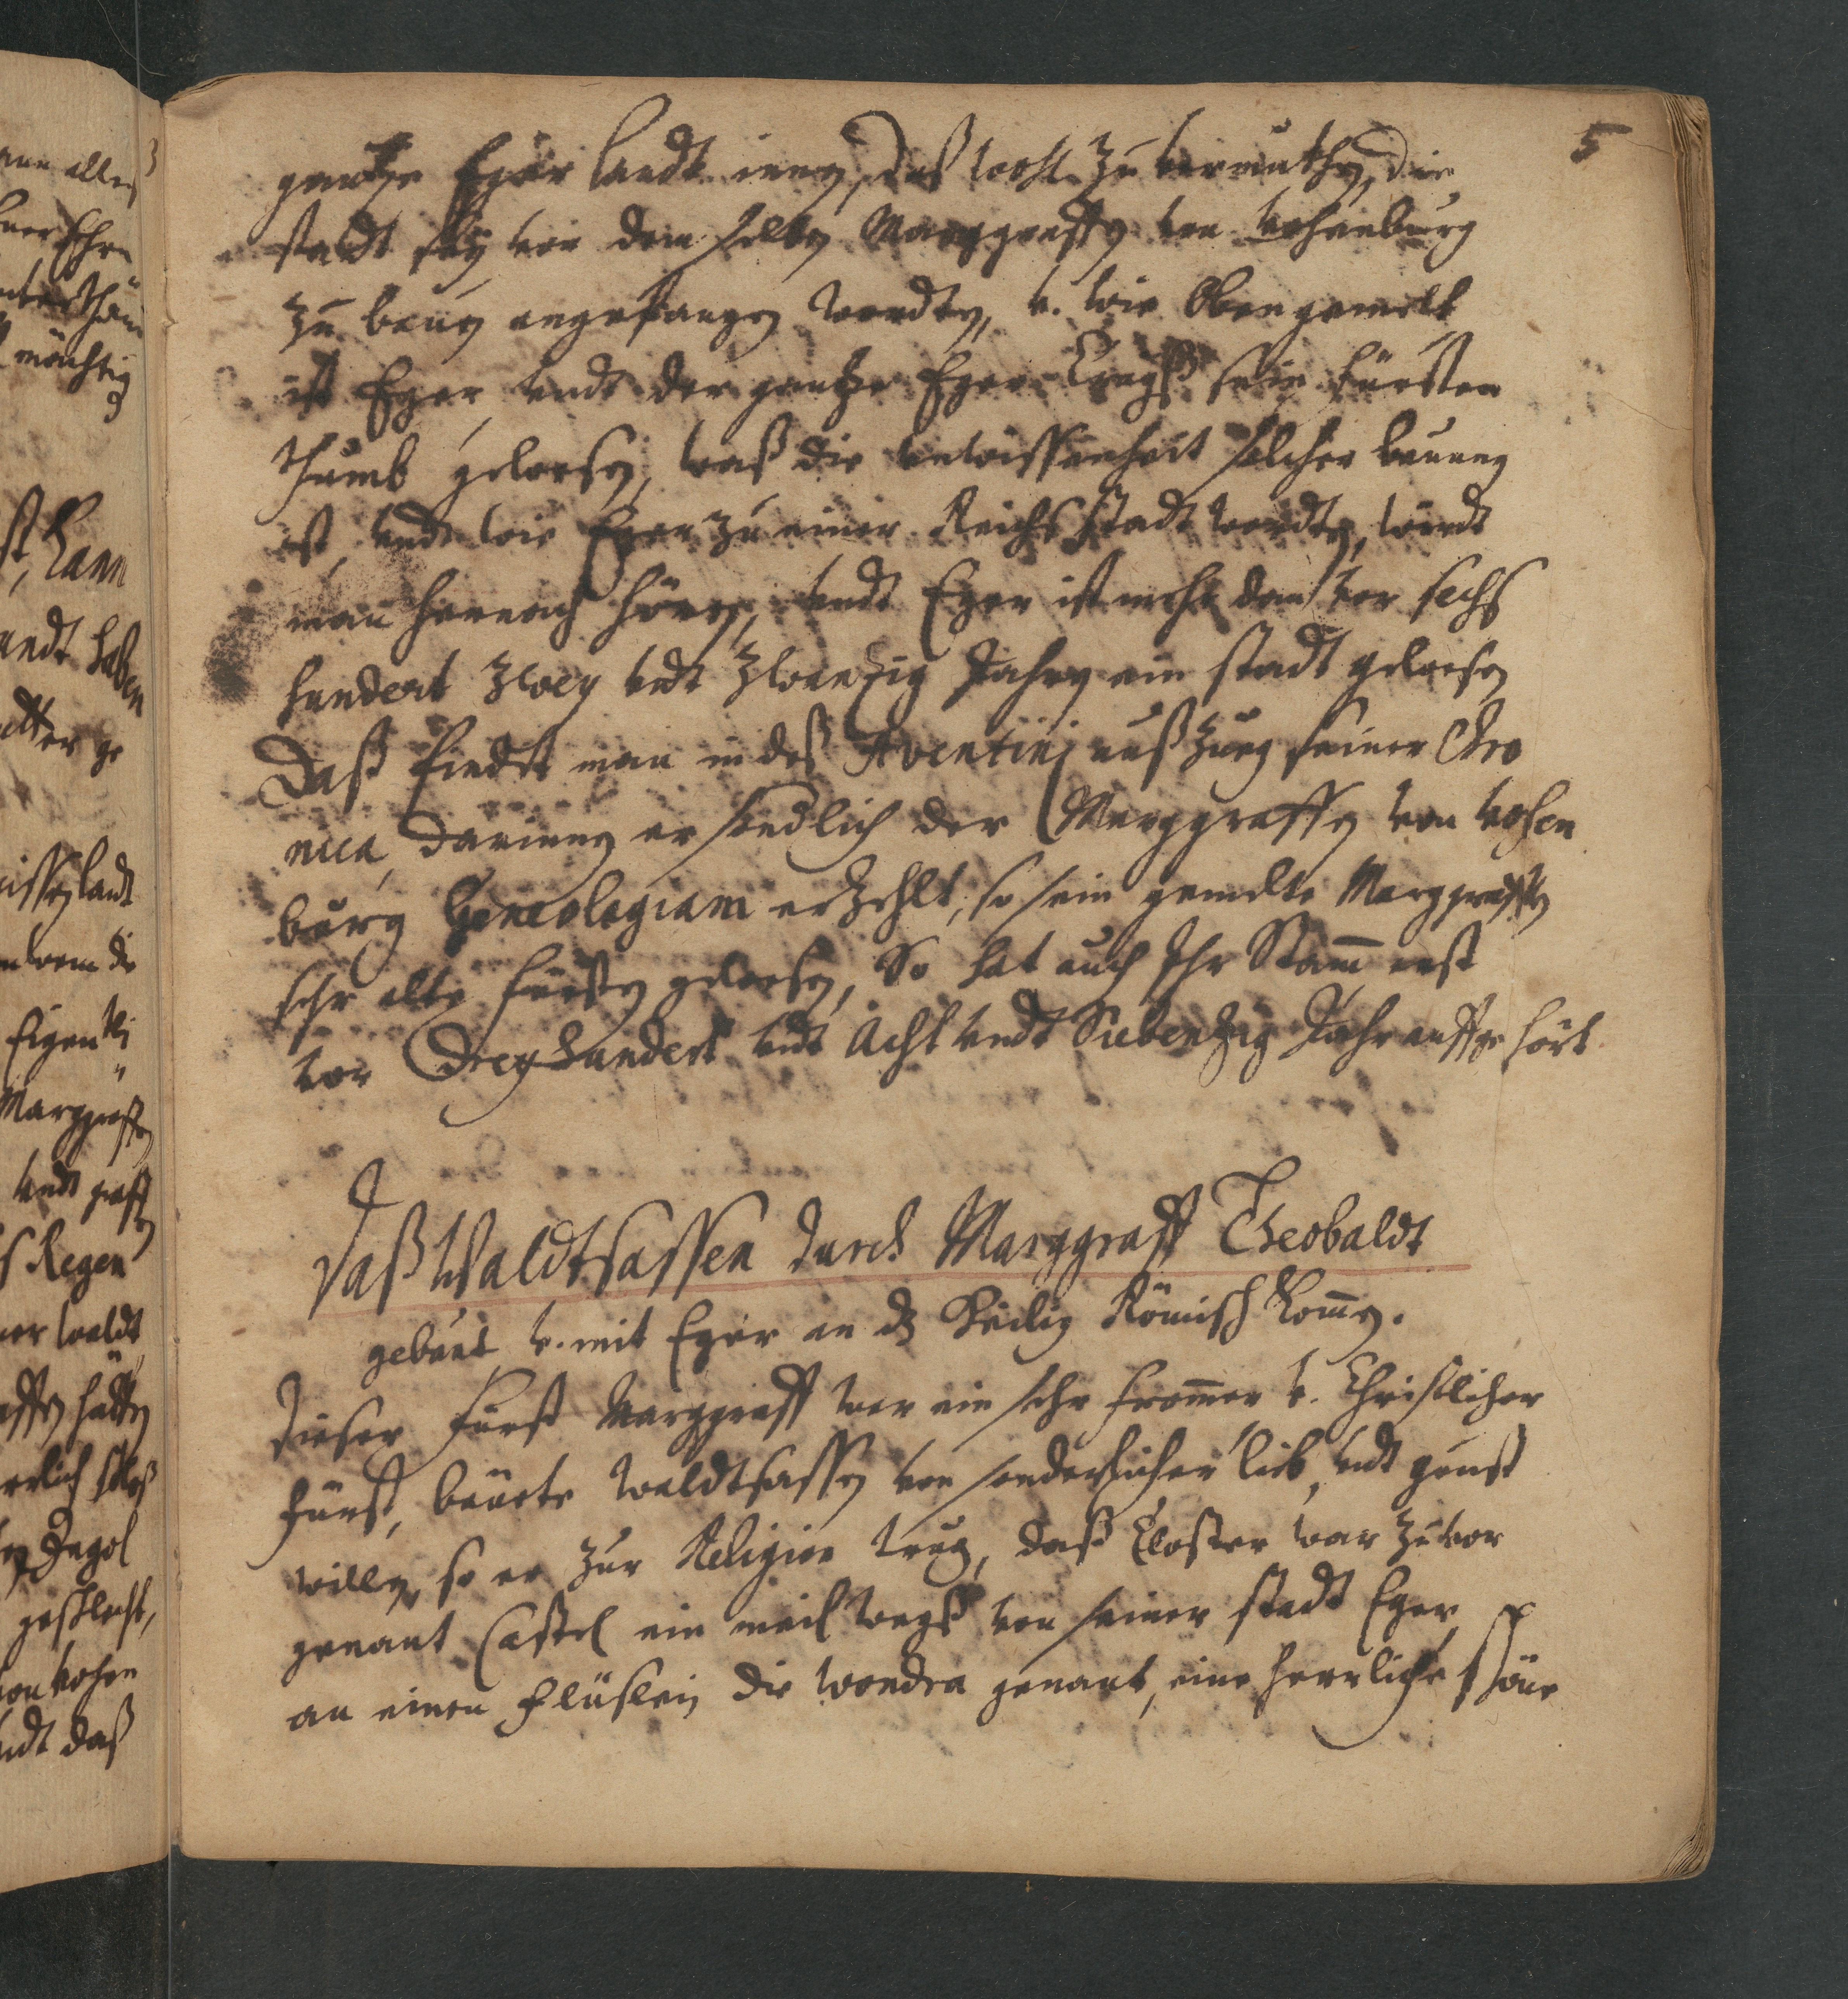 5
gantze Eger landt innen, daß wohl zu vermuthen, die
stadt seÿ von dem selben Marggraffen von vohenburg
zu bauen angefangen worden, v. wie Oben gemelt
ist Eger vndt der gantze Eger Crayß sein fürsten
thumb gewesen, waß die vnwissenheit solcher bauung
ist, vndt wie Eger zu einer Reichsstadt worden, würdt
man hernach hören, vndt Eger ist mehr dan vor sechs
hundert zwey vndt zwentzig Jahren ein stadt gewesen
Daß findet man in deß Aventini außzug seiner Chro
nica, darinnen er endlich der Marggraffen von vohen
burg Geneologiam erzehlt, so sein gemelte Marggraffen
sehr alte fürsten gewesen, So hat auch Ihr Stam̄ erst
vor Dreyhundert vndt Acht vndt Siebentzig Jahr auffgehört
Daß Waldtsassen durch Marggraff Theobaldt
gebaut v. mit Eger an dz Heilig Römisch kom̄en.
Dieser Fürst Marggraff war ein sehr from̄er v. Christlicher
fürst, bauete Waldtsassen von sonderlicher lieb, vndt gunst
willen, so er zur Religion trug, daß Closter war zuvor
genant Castel ein meil wegß von seiner stadt Eger,
an einen flüßlein die wondra genant, eine herrliche schöne